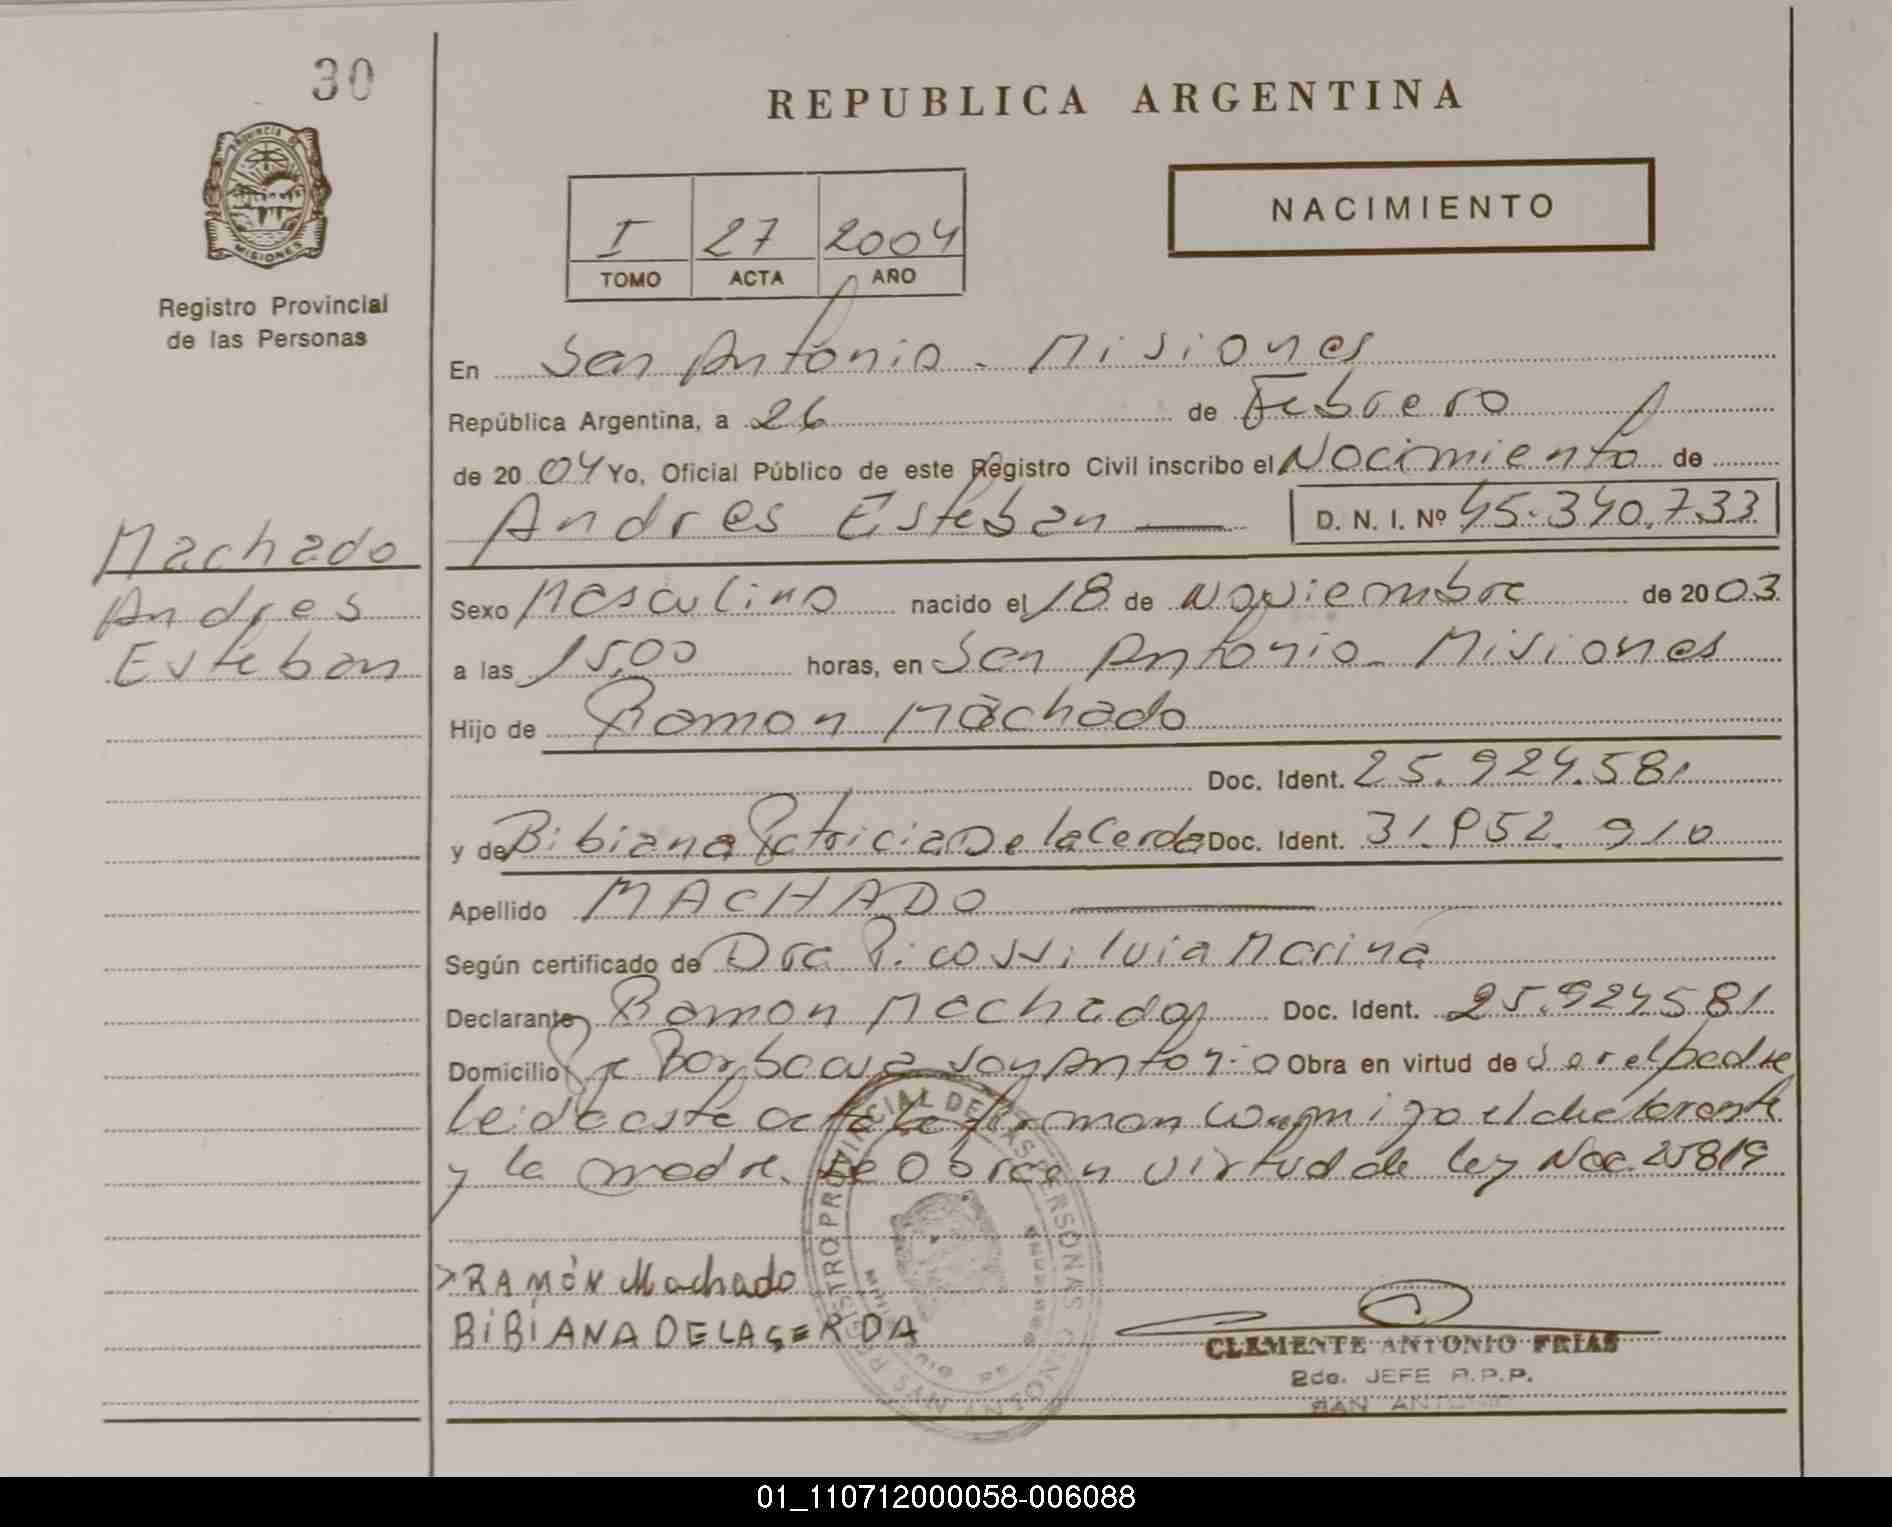 30
REPUBLICA ARGENTINA
PROVINCIA DE
MISIONES
Registro Provincial
de las Personas
NACIMIENTO
I 27 2004
TOMO ACTA AÑO
En San Antonio - Misiones
República Argentina, a 26 de Febrero
de 2004 Yo, Oficial Público de este Registro Civil inscribo el Nacimiento de
Andres Esteban — D. N. I. Nº 45.340.733
Machado
Andres
Esteban
Sexo Masculino nacido el 18 de Noviembre de 2003
a las 15,00 horas, en San Antonio - Misiones
Hijo de Ramon Machado
Doc. Ident. 25.924.581
y de Bibiana Patricia De la Cerda Doc. Ident. 31.952.910
Apellido MACHADO
Según certificado de Dra Picossi luia Marina
Declarante Ramon Machado Doc. Ident. 25.924581
Domicilio Pje Barbacua San Antonio Obra en virtud de Ser el padre
Leida este acta la firman conmigo el declarante
y la madre. se Obra en virtud de ley Nac. 25819
RAMÓN Machado
BiBiANA DELACERDA
REGISTRO PROVINCIAL DE LAS PERSONAS
CLEMENTE ANTONIO FRIAS
2do. JEFE R.P.P.
SAN ANTONIO
01_110712000058-006088